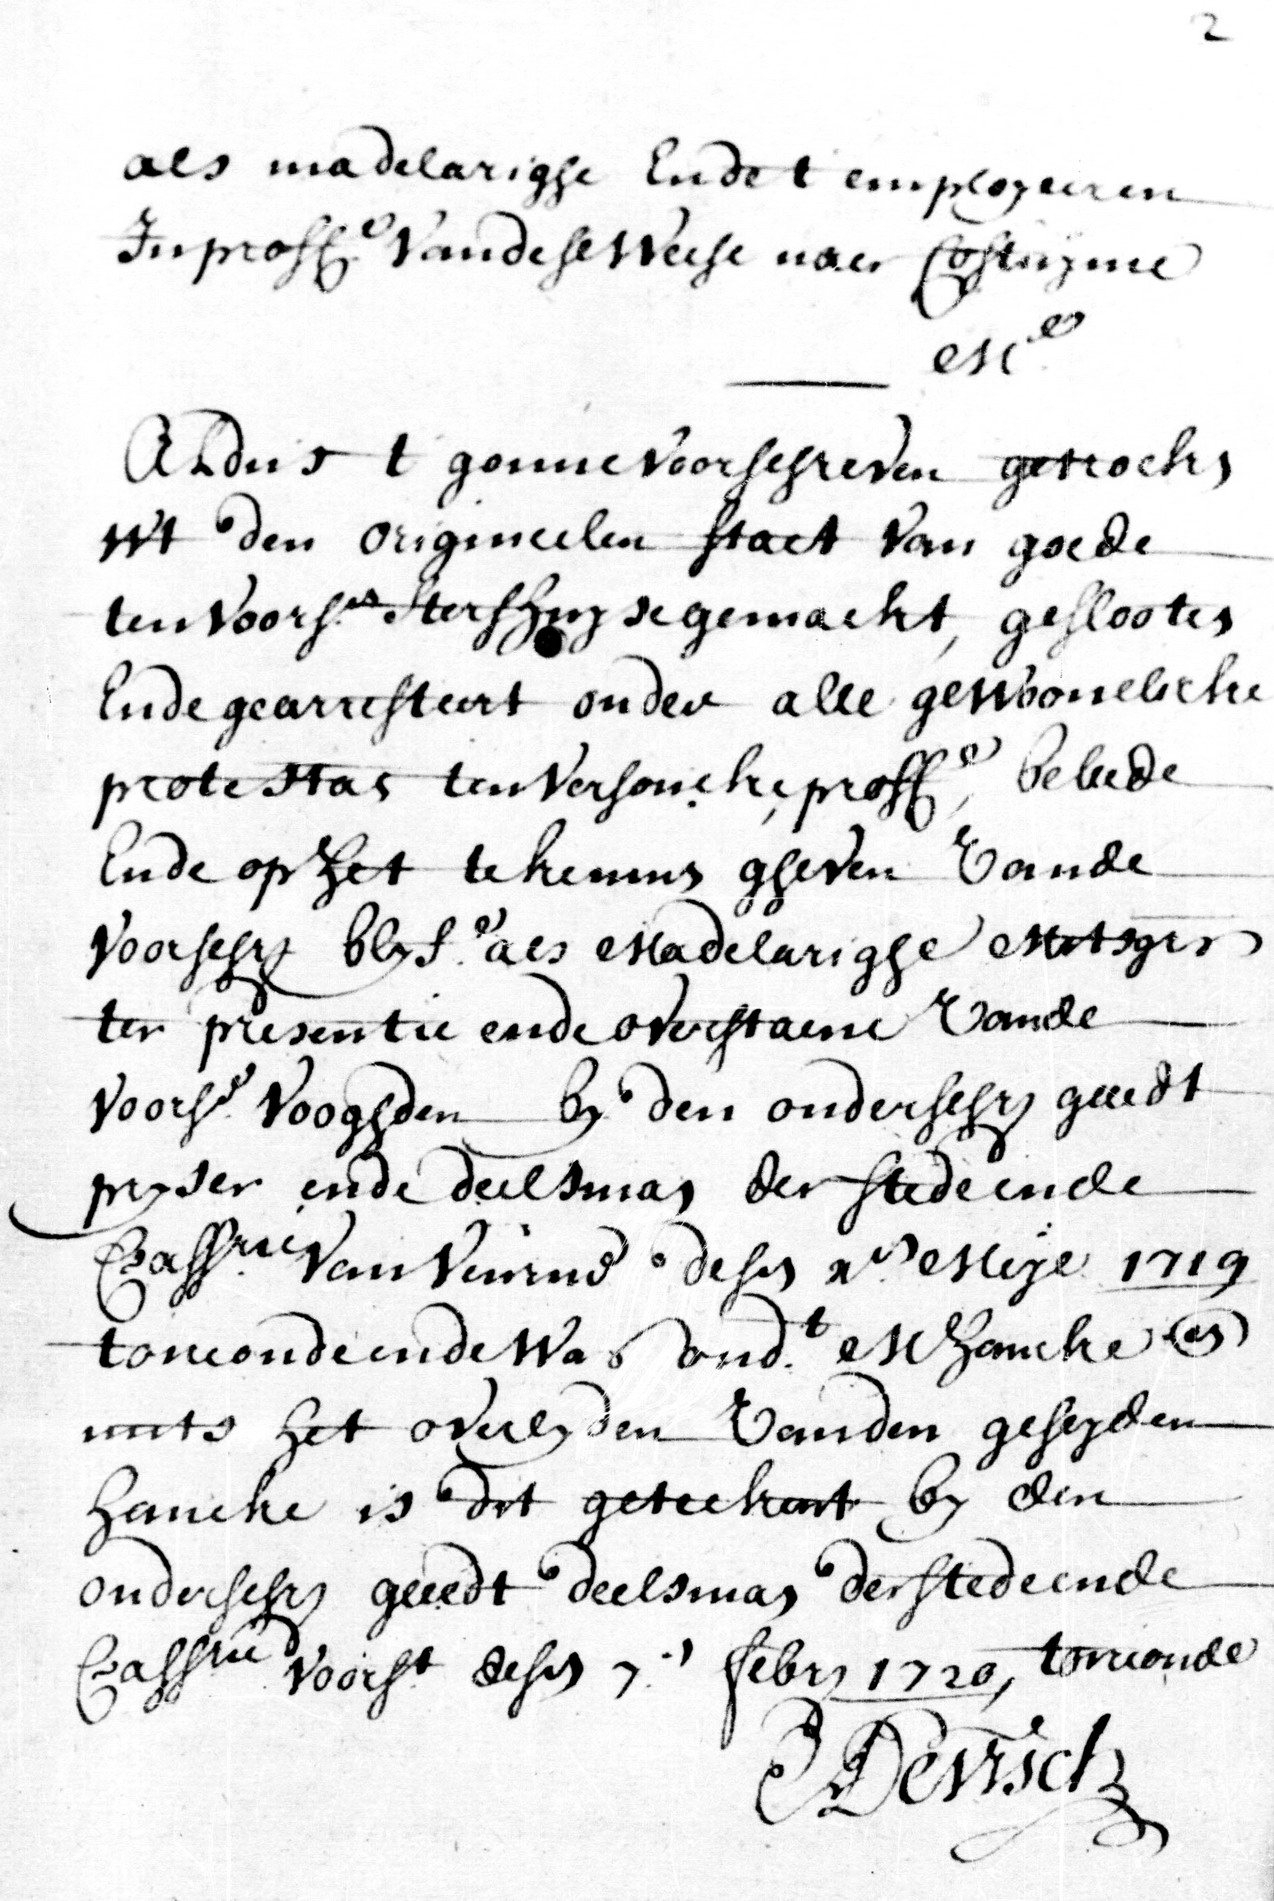 2
als madelarigge Ende t employeeren
In proff.e Vandese Weese naer Costuyme
M.e
Aldus t gonne Voorschreven getrocken
uut den origineelen staet van goede
ten voors.n sterfhuyse gemaekt, geslooten
Ende gearresteert onder alle gewoonelicke
protestaen ten versoucke, proff.e, beleede
Ende op het te kennen gheven Vande
Voorschr blyf.e als Madelarigge Mitsgrs
ter presentie ende overstaene Vande
voors.e Vooghden by den onderschr geeedt
pryser ende deelsman der stede ende
Cass.rie Van Veurne desen Meye 1719
torconde ende was ond.t M Hancke en
mits het overlyden Vanden geseyden
Hancke is dit geteekent by den
onderschr geeedt deelsman der stede ende
Cassrie voors.t desen 7.n febry 1720, torconde